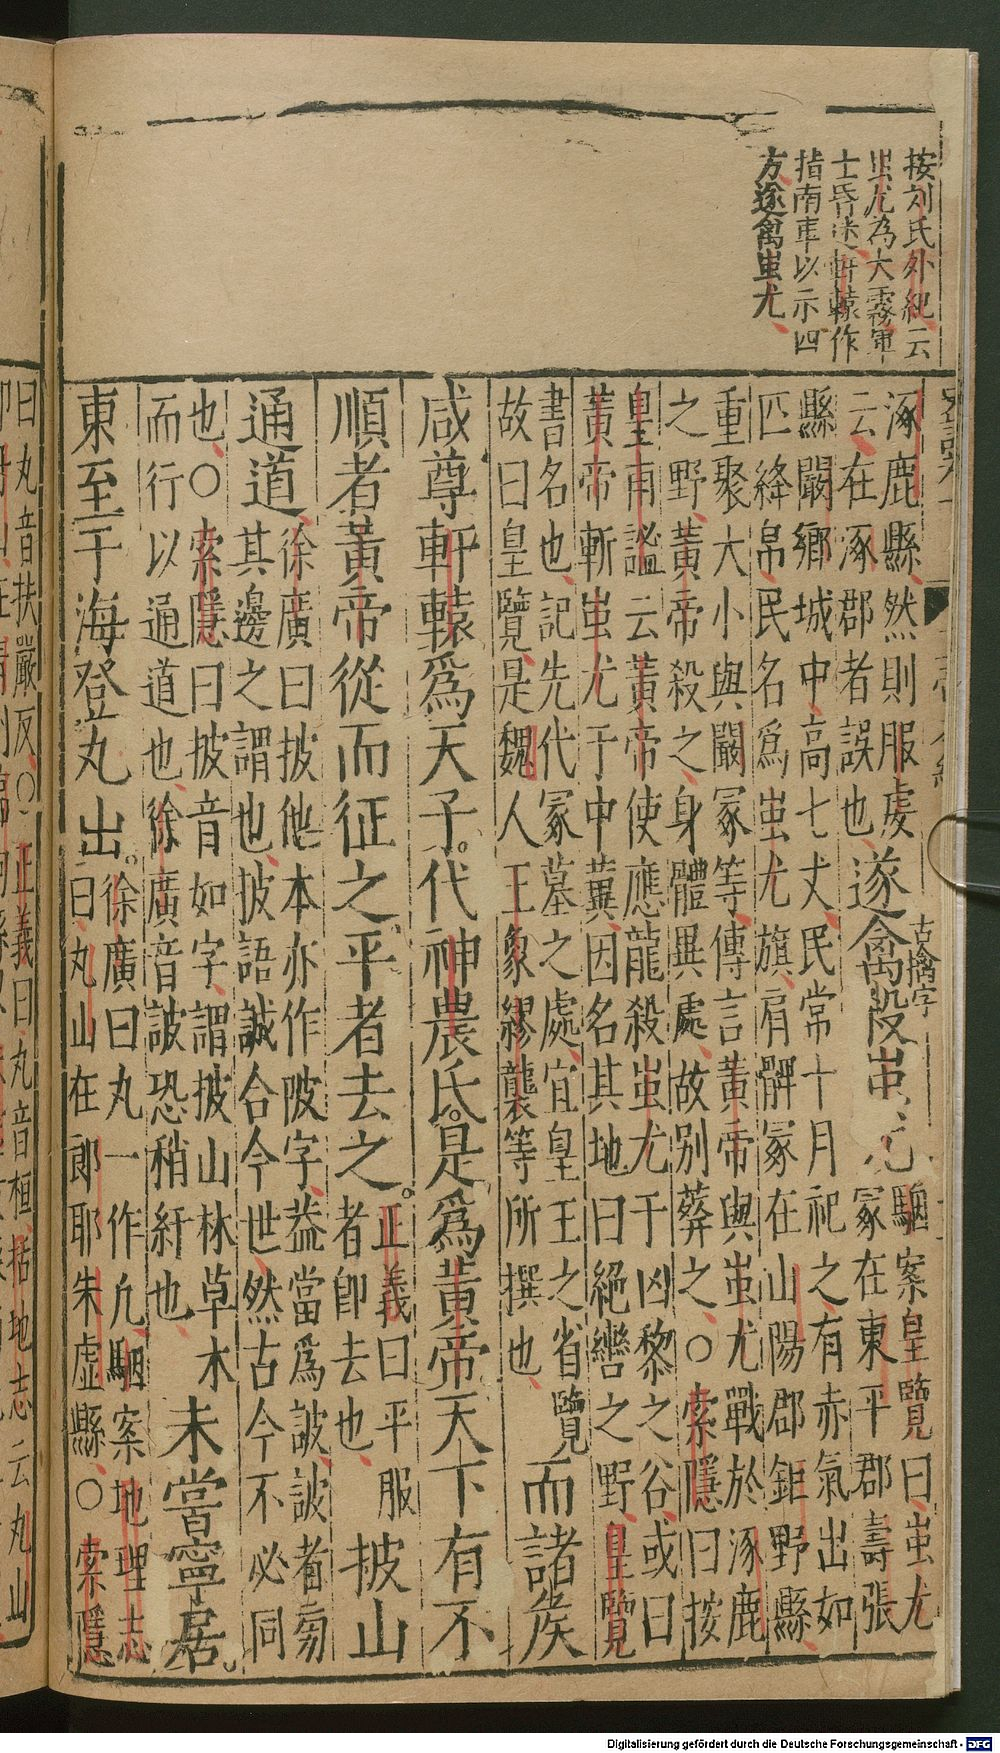 按刘氏外紀云
蚩尤為大霧軍
士昏迷軒轅作
指南車以示四
方遂禽蚩尤
涿鹿縣然則服䖍
云在涿郡者誤也
遂禽殺蚩尤
古擒字
駰案皇覽曰蚩尤
冢在東平郡壽張
縣闞鄉城中高七丈民常十月祀之有赤氣出如
匹絳帛民名爲蚩尤旗肩髀冢在山陽郡鉅野縣
重聚大小與闞冢等傳言黃帝與蚩尤戰於涿鹿
之野黃帝殺之身體異處故别葬之○索隱曰按
皇甫謐云黃帝使應龍殺蚩尤于凶黎之谷或曰
黃帝斬蚩尤于中冀因名其地曰絕轡之野皇覽
書名也記先代冢墓之處宜皇王之省覽
故曰皇覽是魏人王象繆襲等所撰也
而諸侯
咸尊軒轅爲天子。代神農氏。是爲黃帝天下有不
順者黃帝從而征之平者去之。
正義曰平服
者卽去也
披山
通道
徐廣曰披他本亦作陂字葢當爲詖詖者旁
其邊之謂也披語誠合今世然古今不必同
也○索隱曰披音如字謂披山林草木
而行以通道也徐廣音詖恐稍紆也
未嘗寧居。
東至于海登丸出。
徐廣曰丸一作凡駰案地理志
曰丸山在郎耶朱虛縣○索隱
曰丸音扶嚴反○正義曰丸音桓括地志云丸山
Digitalisierung gefördert durch die Deutsche Forschungsgemeinschaft - DFG